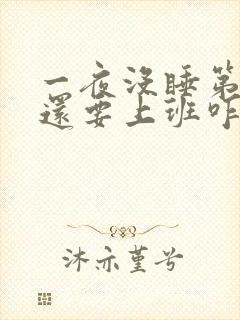 一夜没睡第
還要上班咋
沐亦堇兮